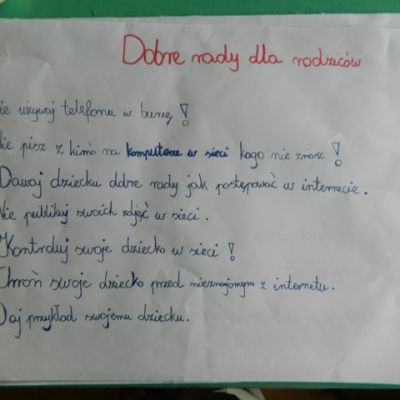 Dobre rady dla rodziców
ie używaj telefonu w burzę!
Nie pisz z kimś na komputerze w sieci kogo nie znasz!
Dawaj dziecku dobre rady jak postępować w internecie.
Nie publikuj swoich zdjęć w sieci.
Kontroluj swoje dziecko w sieci!
Chroń swoje dziecko przed nieznajomym z internetu.
Daj przykład swojemu dziecku.